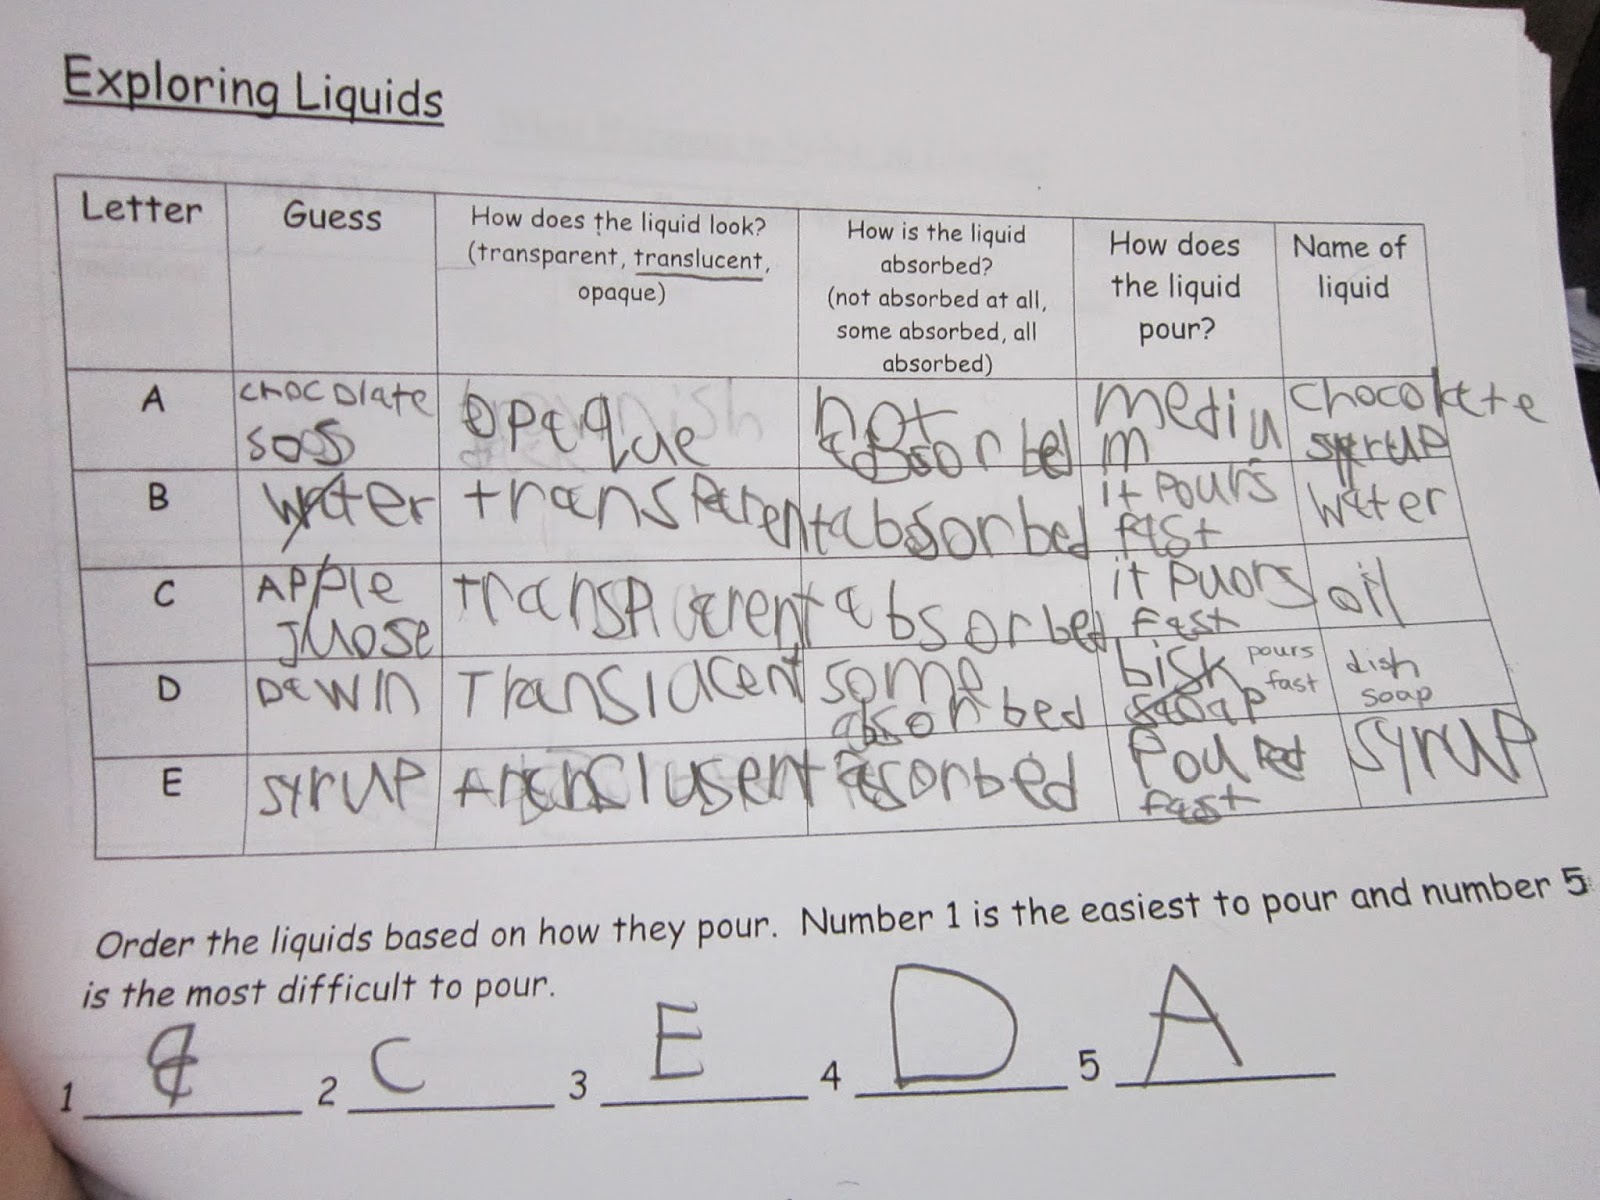 Exploring Liquids
Letter
Guess
How does the liquid look?
(transparent, translucent,
opaque)
How is the liquid
absorbed?
(not absorbed at all,
some absorbed, all
absorbed)
How does
the liquid
pour?
Name of
liquid
A
chocolate
soos
opaque
not
absorbed
mediu
m
chocolate
syrup
B
water
transparent
absorbed
it pours
fast
water
C
APPle
juose
transparent
absorbed
it puors
fast
oil
D
Dawn
Translucent
some
absorbed
soap
pours
fast
dish
soap
E
syrup
translusent
absorbed
Poured
fast
syrup
Order the liquids based on how they pour. Number 1 is the easiest to pour and number 5
is the most difficult to pour.
1 2 C 3 E 4 D 5 A